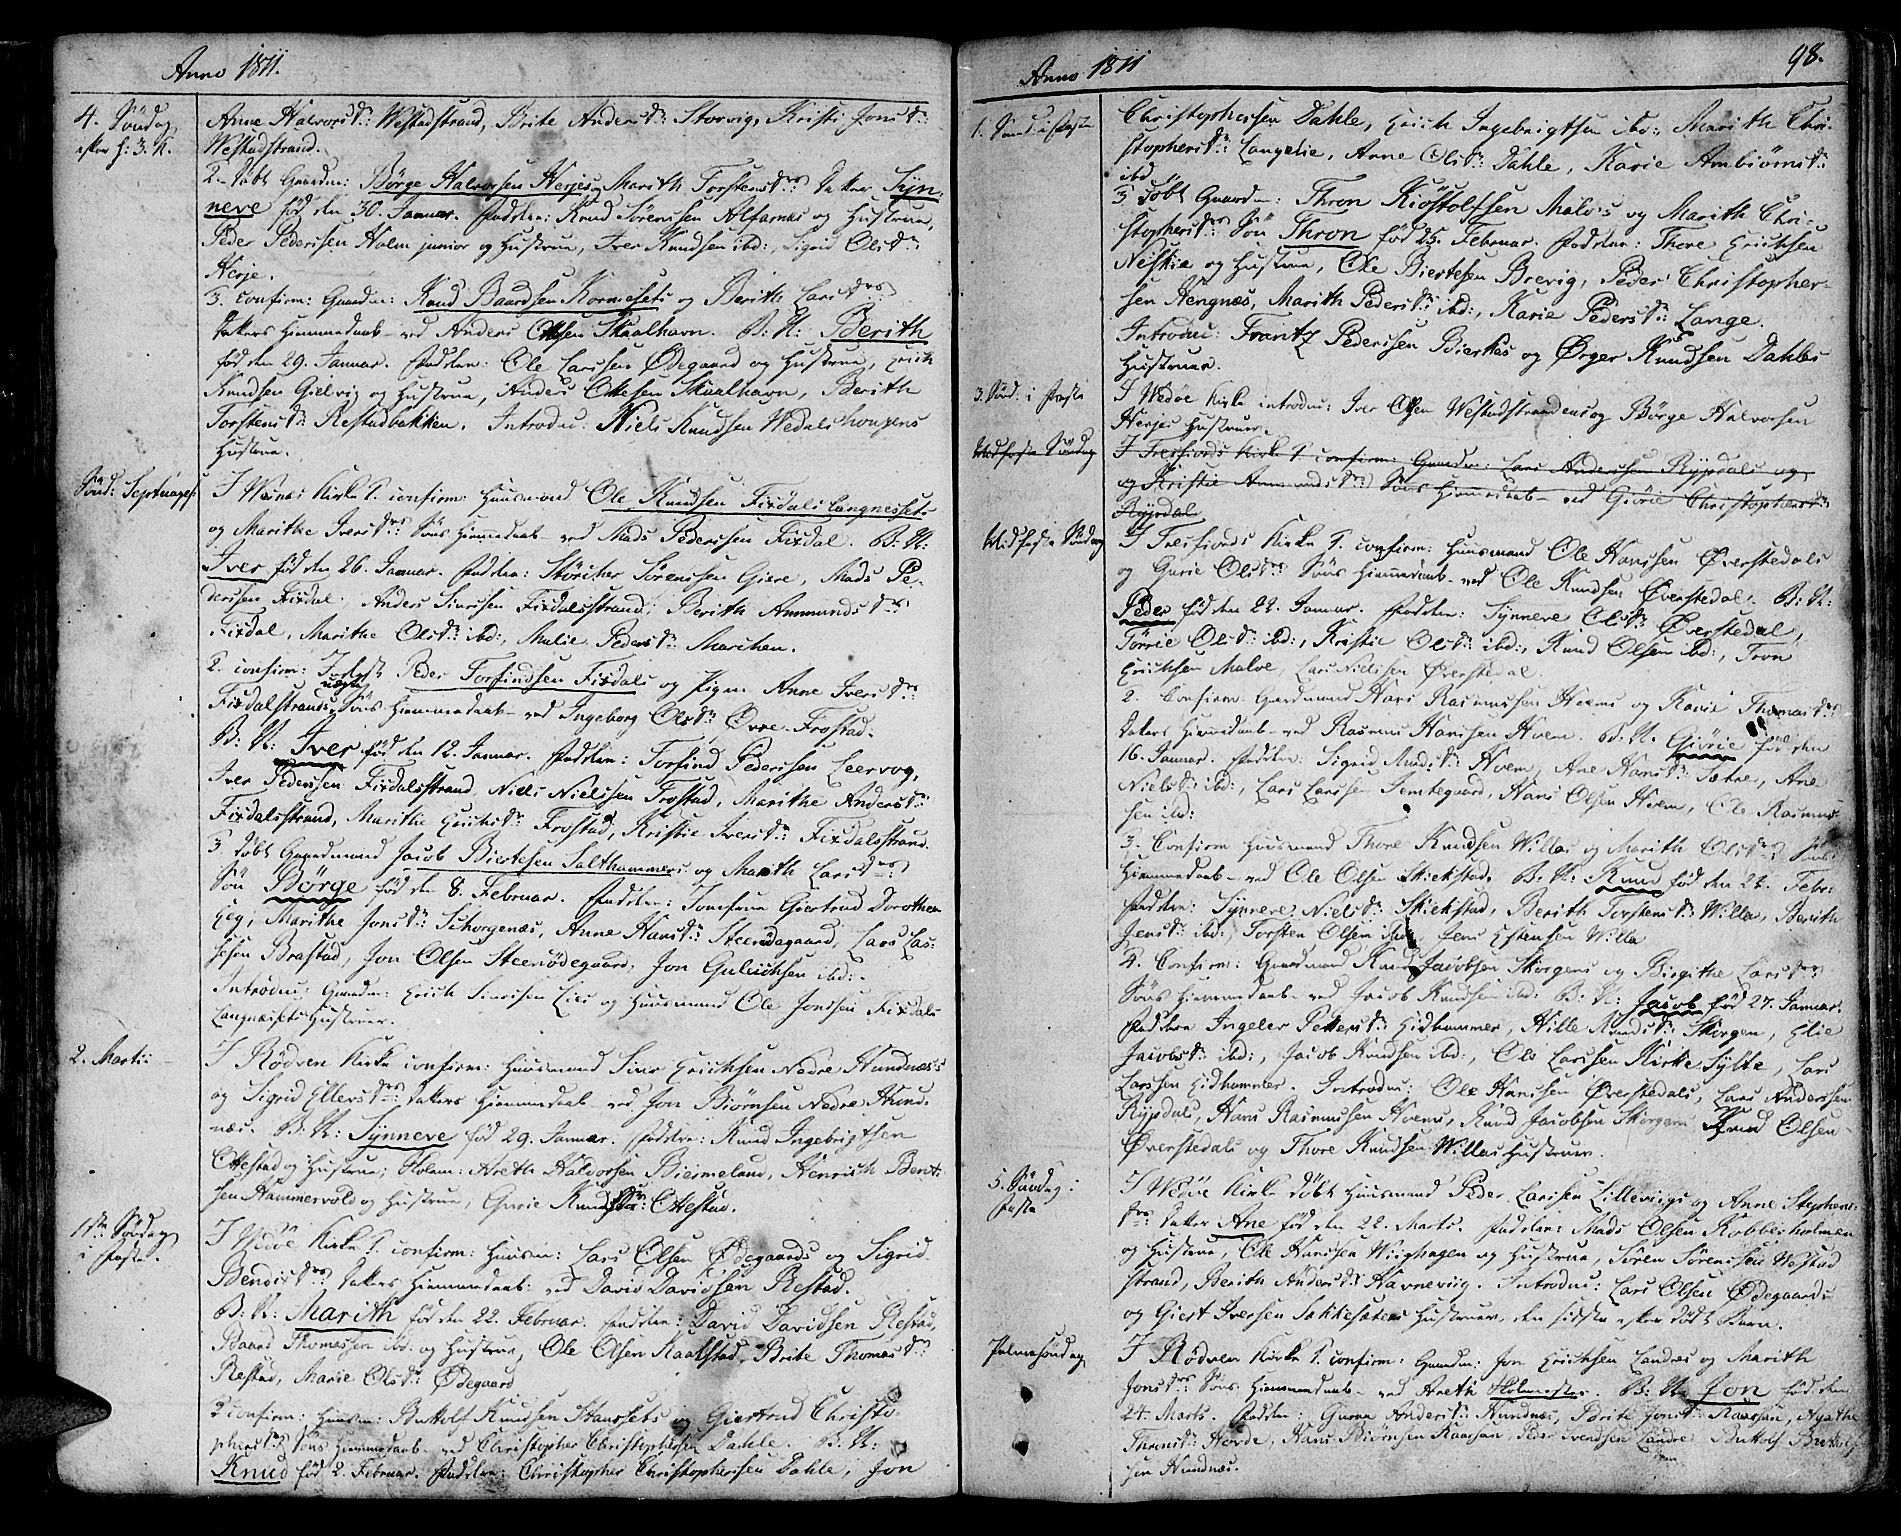 Anno 1811.
4. Söndag
efter h: 3. K.
Anne Halvorsd: Westadstrand, Brite Andersd: Storvig, Kristi Jonsd:
Westadstrand.
2. döbt Gaardm: Börge Halvorsen Herjes og Marith Torstensd: Datter Syn-
neve född den 30. Januar. Fadder: Knud Sörensen Alfarnæs og Hustrue,
Peder Pedersen Holm junior og Hustrue, Iver Knudsen ibd:, Sigrid Olsd:
Herje.
3. confirm: Gaardm: Knud Baardsen Kormesets og Berith Larsd:
Datters Hiemmedaab ved Anders Ottesen Skaalhavn. B: N: Berith
född den 29. Januar. Fadder: Ole Larsen Ødegaard og Hustrue, Erich
Knudsen Gielvig og Hustrue, Anders Ottesen Skaalhavn, Berith
Torstensd: Restadbakken. Introdu: Niels Knudsen Wedalshougens
Hustrue.
Sönd: Septuages:
I Wejnes Kirke 1. confirm: Huusmand Ole Knudsen Fixdals Langnessets
og Marithe Iversd: Söns Hiemmedaab ved Mads Pedersen Fixdal. B: N:
Iver född den 26. Januar. Fadder: Störcher Sörensen Giere, Mads Pe-
dersen Fixdal, Anders Siursen Fixdalsstrand, Berith Ammundsd:
Fixdal, Marithe Olsd: ibd:, Malie Pedersd: Marchen.
2. confirm: Peder Torfindsen Fixdals og Pigen Anne Iversd:
Fixdalstrands uægte Söns Hiemmedaab ved Ingeborg Olsd: Øvre-Frostad.
B: N: Iver född den 12. Januar. Fadder: Torfind Pedersen Leervog,
Iver Pedersen Fixdalsstrand, Niels Nielsen Frostad, Marithe Andersd:
Fixdalsstrand, Marithe Erichsd: Frostad, Kristie Iversd: Fixdalsstrand.
3. döbt Gaardmand Jacob Biertesen Salthammers og Marith Larsd:
Sön Börge född den 8. Februar. Fadder: Jomfrue Giertrud Dorothea
Eeg, Marithe Jonsd: Schorgenæs, Anne Hansd: Steenödegaard, Lars Las-
sesen Brastad, Jon Olsen Steenödegaard, Jon Gulichsen ibd:
Introdu: Gaardm: Erich Siursen Lies og Huusmand Ole Jonsen Fixdals
Langnæsets Hustruer.
2. Martii
I Rödven Kirke confirm: Huusmand Siver Erichsen Nedre Hundnæs's
og Sigrid Ellersd: Datters Hiemmedaab ved Jon Biörnsen Nedre Hund-
næs. B: N: Synneve född 29. Januar. Fadder: Knud Ingebrigtsen
Ottestad og Hustrue, Holm: Areth Haldorsen Biermeland, Henrich Bent-
sen Hammervold og Hustrue, Gurie Knudsd: Ottestad.
1ste Söndag
i Faste.
I Wedöe Kirke 1. confirm: Huusm: Lars Olsen Ødegaards og Sigrid
Bendixd: Datters Hiemmedaab: ved David Davidsen Restad.
B: N: Marith född den 22. Februar. Fadder: David Davidsen Restad,
Baard Thomassen ibd: og Hustrue, Ole Olsen Kaalstad, Brite Thomasd:
Restad, Marie Olsd: Ødegaard
2 confirm: Huusm: Buttolf Knudsen Stavssets og Giertrud Christo-
phersd: Söns Hiemmedaab ved Christopher Christophersen Dahle. B: N:
Knud född 2. Februar. Fadder: Christopher Christophersen Dahle, Jon
Anno 1811
98.
1. Sönd: i Faste
Christophersen Dahle, Erich Ingebrigtsen ibd:, Marith Chri-
stophersd: Langelie, Anne Olsd: Dahle, Karie Ambiörnsd:
ibd.
3 döbt Gaardm: Thron Kiöstolfsen Malo's og Marith Chri-
stophersd: Sön Thron född 25. Februar. Fadder: Thore Erichsen
Neskie og Hustrue, Ole Biertesen Brevig, Peder Christopher-
sen Hengnæs, Marith Pedersd: ibd:, Karie Pedersd: Lange.
Introdu: Frantz Pedersen Bierkes og Ørger Knudsen Dahles
Hustruer.
3. Sönd: i Faste
I Wedöe Kirke introdu: Iver Olsen Westadstrandens og Börge Halvorsen
Herjes Hustruer.
Midfaste Söndag
I Tresfiords Kirke 1. confirm: Gaardm: Lars Andersen Rypdals og
og Kristie Ammundsd: Söns Hiemmedaab ved Giörie Christophersd:
Rypdal.
Midfaste Söndag
I Tresfiords Kirke 1. confirm: Huusmand Ole Hansen Øverstedals
og Gurie Olsd: Söns Hiemmedaab ved Ole Knudsen Øverstedal. B: N:
Peder född den 22. Januar. Fadder: Synneve Olsd: Øverstedal,
Törrie Olsd: ibd:, Kristie Olsd: ibd:, Knud Olsen ibd:, Tron
Erichsen Maloe, Lars Nielsen Øverstedal.
2. Confirm: Gaardmand Hans Rasmussen Hoems og Karie Thomasd:
Datters Hiemmedaab ved Rasmus Hansen Hoem. B: N. Giörie född den
16. Januar. Fadder: Sigrid Madsd: Hoem, Ane Hansd: Sætre, Ane
Nielsd: ibd:, Lars Larsen Temtegaard, Hans Olsen Hoem, Ole Rasmus-
sen ibd:
3. Confirm Huusmand Thore Knudsen Willas og Marith Olsd: Söns
Hiemmedaab ved Ole Olsen Skiekstad. B: N: Knud född den 22. Febr:
Fadder: Synneve Nielsd: Skiekstad, Berith Torstensd: Willa, Berith
Jensd: ibd:, Torsten Olsen ibd:, Jens Estensen Willa
4. Confirm: Gaardmand Knud Jacobsen Skorgens og Birgithe Larsd:
Söns Hiemmedaab ved Jacob Knudsen ibd: B: N: Jacob född 27. Januar.
Fadder Ingeler Pettersd: Eidhammer, Hille Knudsd: Skorgen, Elie
Jacobsd: ibd:, Jacob Knudsen ibd:, Ole Larsen Kirke-Sylte, Lars
Larsen Eidhammer. Introdu: Ole Hansen Øverstedals, Lars Anderssen
Rypdals, Hans Rasmussen Hoems, Knud Jacobsen Skorgens Knud Olsen
Øverstedals og Thore Knudsen Willas Hustruer.
5. Söndag i
Faste
I Wedöe Kirke döbt Huusmand Peder Larsen Lillevigs og Anne Stephens-
d: Datter Ane född den 22. Marts. Fadder: Mads Olsen Kobbesholmen
og Hustrue, Ole Hansen Wiighagen og Hustrue, Sören Sörensen Westad
strand, Berith Andersd: Havnevig. Introdu: Lars Olsen Ødegaards
og Giert Iversen Sækkesæters Hustruer, den sidste efter dödt Barn.
Palmesöndag
I Rödven Kirke 1. confirm: Gaardm: Jon Erichsen Landres og Marith
Jonsd: Söns Hiemmedaab ved Areth Holmester. B: N: Jon född den
24. Marts. Fadder: Guren Andersd: Hundnæs, Brite Jonsd: Raasan, Agathe
Thronsd: Horde, Hans Biörnsen Raasan, Peder Svendsen Landre Buttolf Buttolf-
sen Hundnæs.